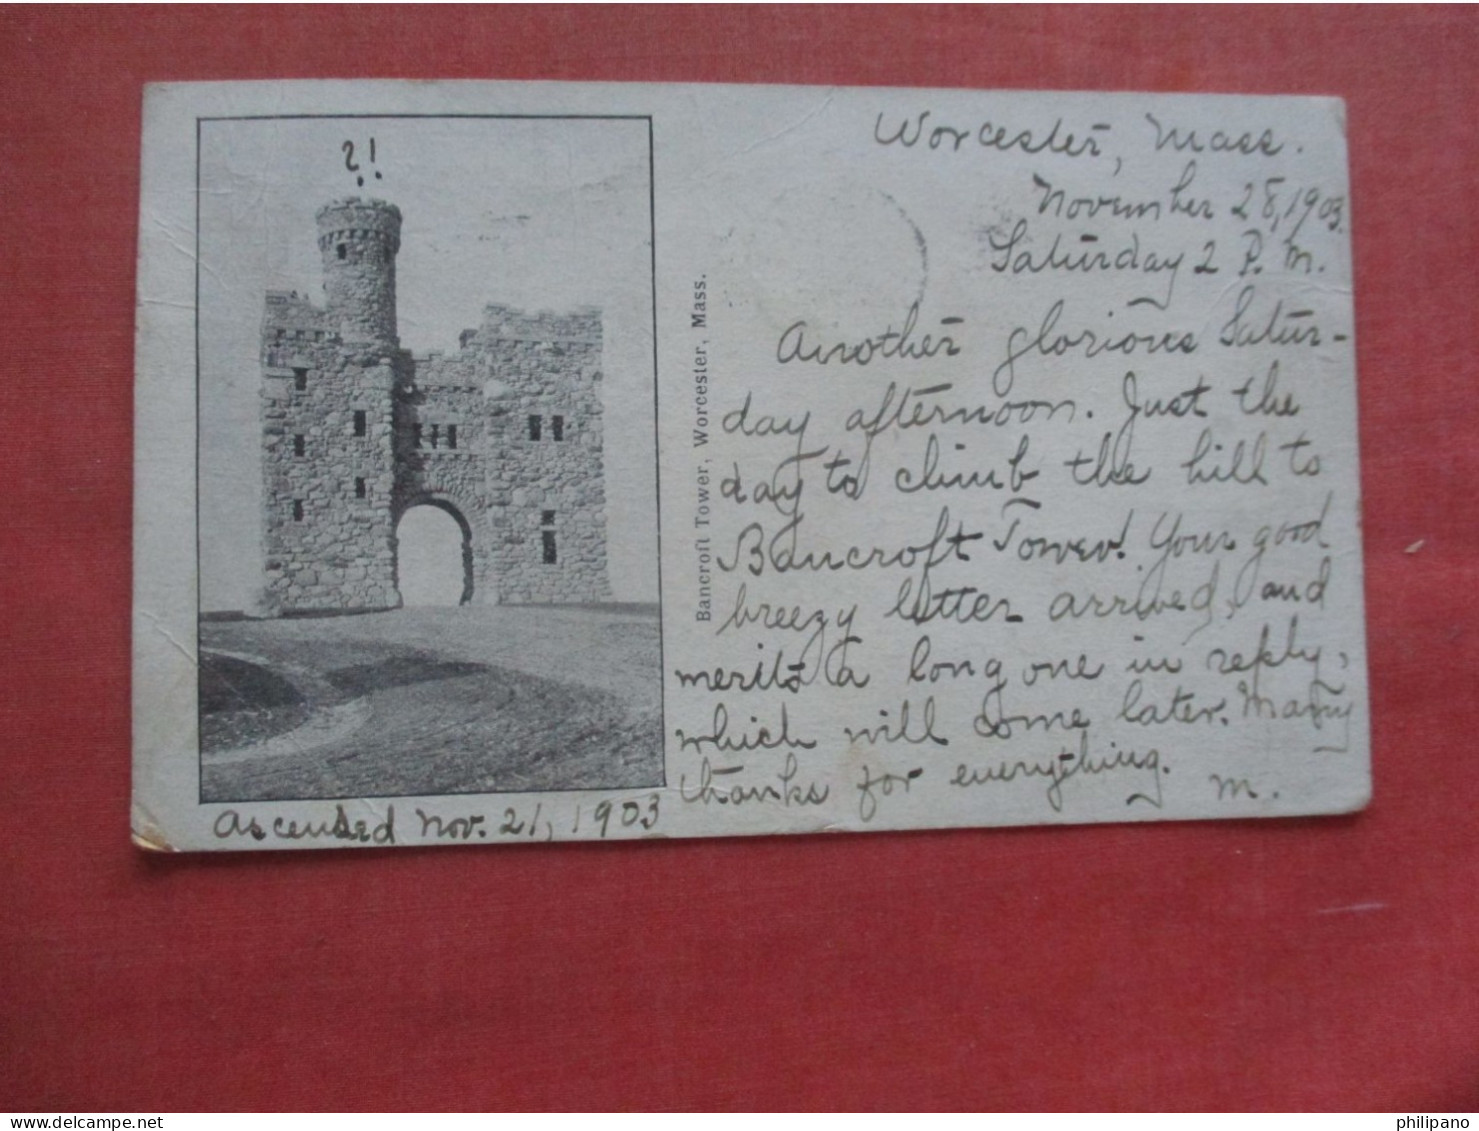 ?!
Bancroft Tower, Worcester, Mass.
Ascended Nov. 21, 1903
Worcester, Mass.
November 28, 1903.
Saturday 2 P. M.
Another glorious Satur-
day afternoon. Just the
day to climb the hill to
Bancroft Tower! Your good
breezy letter arrived, and
merits a long one in reply,
which will come later. Many
thanks for everything.
M.
delcampe.net
philipano